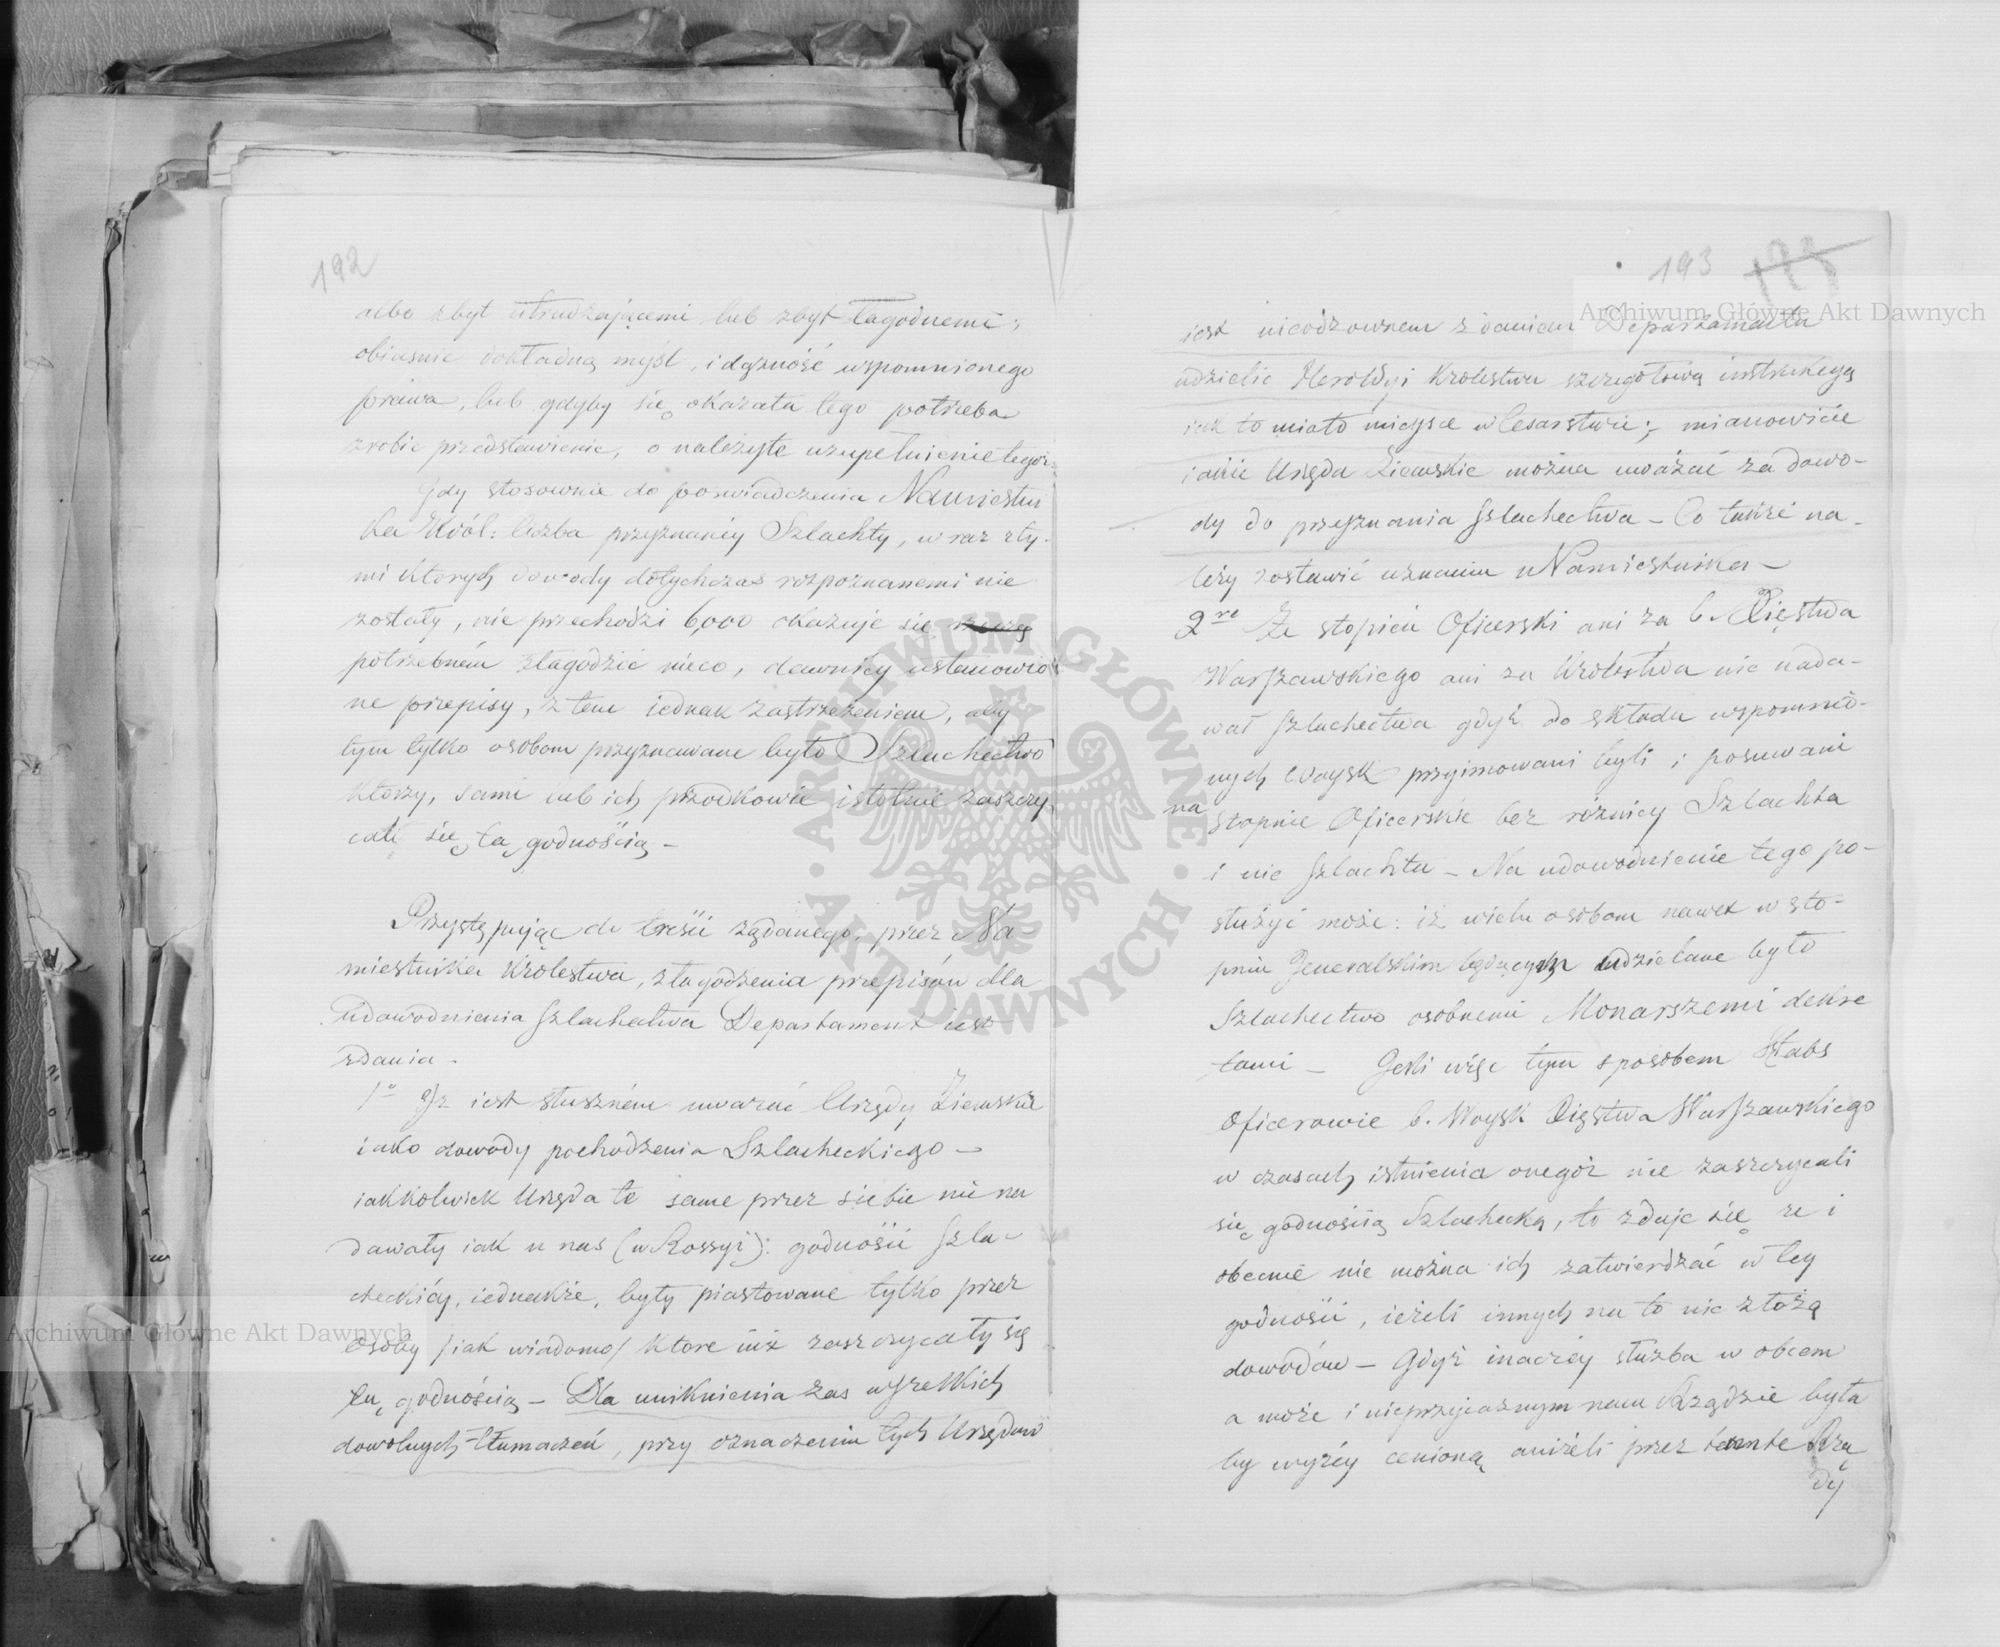 192
albo zbyt utrudzającemi lub zbyt łagodnemi;
obiasnic dokładną myśl, i dążność wspomnionego
prawa, lub gdyby się okazała tego potrzeba
zrobic przedstawienie, o należyte uzupełnienie tegoż.
Gdy stosownie do poswiadczenia Namiestni
ka Król: liczba przyznanéy Szlachty, w raz z ty-
mi ktorych dowody dotychczas rozpoznanemi nie
zostały, nie przechodzi 6,000 okazuje się
potrzebném złagodzić nieco, dawniéy ustanowio
ne przepisy, z tem iednak zastrzeżeniem, aby
tym tylko osobom przyznawane było Szlachectwo
ktorzy, sami lub ich przodkowie istotnie zaszczy
cali się tą godnością –
Przystępując do treści żądanego, przez Na
miestnika Krolestwa, złagodzenia przepisów dla
udowodnienia Szlachectwa Departament iest
zdania –
1º Iz iest słuszném uwazać Urzędy Ziemskie
iako dowody pochodzenia Szlacheckiego –
iakkolwiek Urzęda te same przez siebie nie na
dawały iak u nas (w Rossyi): godności Szla-
checkiéy, iednakże, były piastowane tylko przez
osoby /iak wiadomo/ ktore iuż zaszczycały się
tą godnością – Dla uniknienia zas wszelkich
dowolnych tłumaczeń, przy oznaczeniu tych Urzędów
193 193
iest nieodzownem zdaniem Departamentu
udzielic Heroldyi Krolestwa szczegołową instrukcyą
iak to miało mieysce w Cesarstwie; mianowicie
iakie Urzęda Ziemskie można uważać za dowo-
dy do przyznania Szlachectwa – Co także na-
leży zostawić uznaniu Namiestnika –
2re Ze stopień Oficerski ani za b. Xięstwa
Warszawskiego ani za Krolestwa nie nada-
wał Szlachectwa gdyż do składu wspomnio-
nych Woysk przyimowani byli i posuwani
na stopnie Oficerskie bez różnicy Szlachta
i nie Szlachta – Na udowodnienie tego po-
służyć może: iż wielu osobom nawet w sto-
pniu Jeneralskim będącym udzielane było
Szlachectwo osobnemi Monarszemi dekre
tami – Jesli więc tym sposobem Sztabs
Oficerowie b. Woysk Xięstwa Warszawskiego
w czasach istnienia onegóż nie zaszczycali
się godnością Szlachecką, to zdaje się że i
obecnie nie można ich zatwierdzać w tey
godności, ieżeli innych na to nie złożą
dowodów – Gdyż inaczéy służba w obcem
a może i nieprzyjaznym nam Rządzie była
by wyżéy cenioną aniżeli przez tamte Rzą
dy
Archiwum Główne Akt Dawnych
Archiwum Główne Akt Dawnych
ARCHIWUM GŁÓWNE AKT DAWNYCH